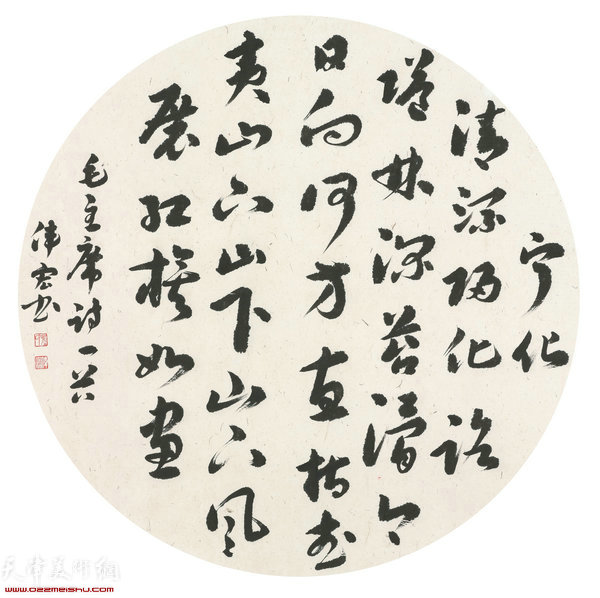 宁化
清流归化路
隘林深苔滑今
日向何方直指武
夷山下山下山下风
展红旗如画
毛主席诗一首
伟 书
天津美术网
www.022meishu.com